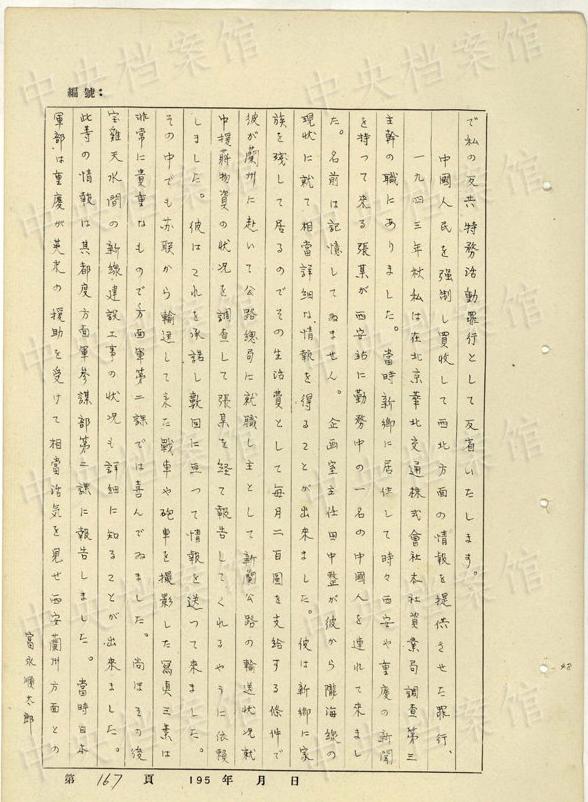 編號:
で私の反共特務活動罪行として反省いたします。
中國人民を強制し買收して西北方面の情報を提供させた罪行、
一九四三年秋私は在北京華北交通株式會社本社資業局調查第三
主幹の職にありました。當時新鄉に居住して時々西安や重慶の新聞
を持って來る張某が西安站に勤務中の一名の中國人を連れて來まし
た。名前は記憶してゐません。企画室主任田中整が彼から隴海線の
現狀に就て相當詳細な情報を得ることが出來ました。彼は新鄉に家
族を殘して居るのでその生活費として每月二百圓を支給する條件で
彼が蘭州に赴いて公路總局に就職し主として新蘭公路の輸送狀況就
中援蔣物資の狀況を調查して張某を経て報告してくれるやうに依賴
しました。彼はこれを承諾し數回に亘って情報を送って來ました。
その中でも苏联から輸送して来た戰車や砲車を撮影した寫眞三葉は
非常に貴重なもので方面軍第二課では喜んでゐました。尚ほその後
宝雞天水間の新線建設工事の狀況も詳細に知ることが出來ました。
此等の情報は其都度方面軍參謀部第二課に報告しました。當時日本
軍部は重慶が英米の援助を受けて相當活気を見せ西安蘭州方面との
富永順太郎
第 167 頁 195 年 月 日
中央档案馆